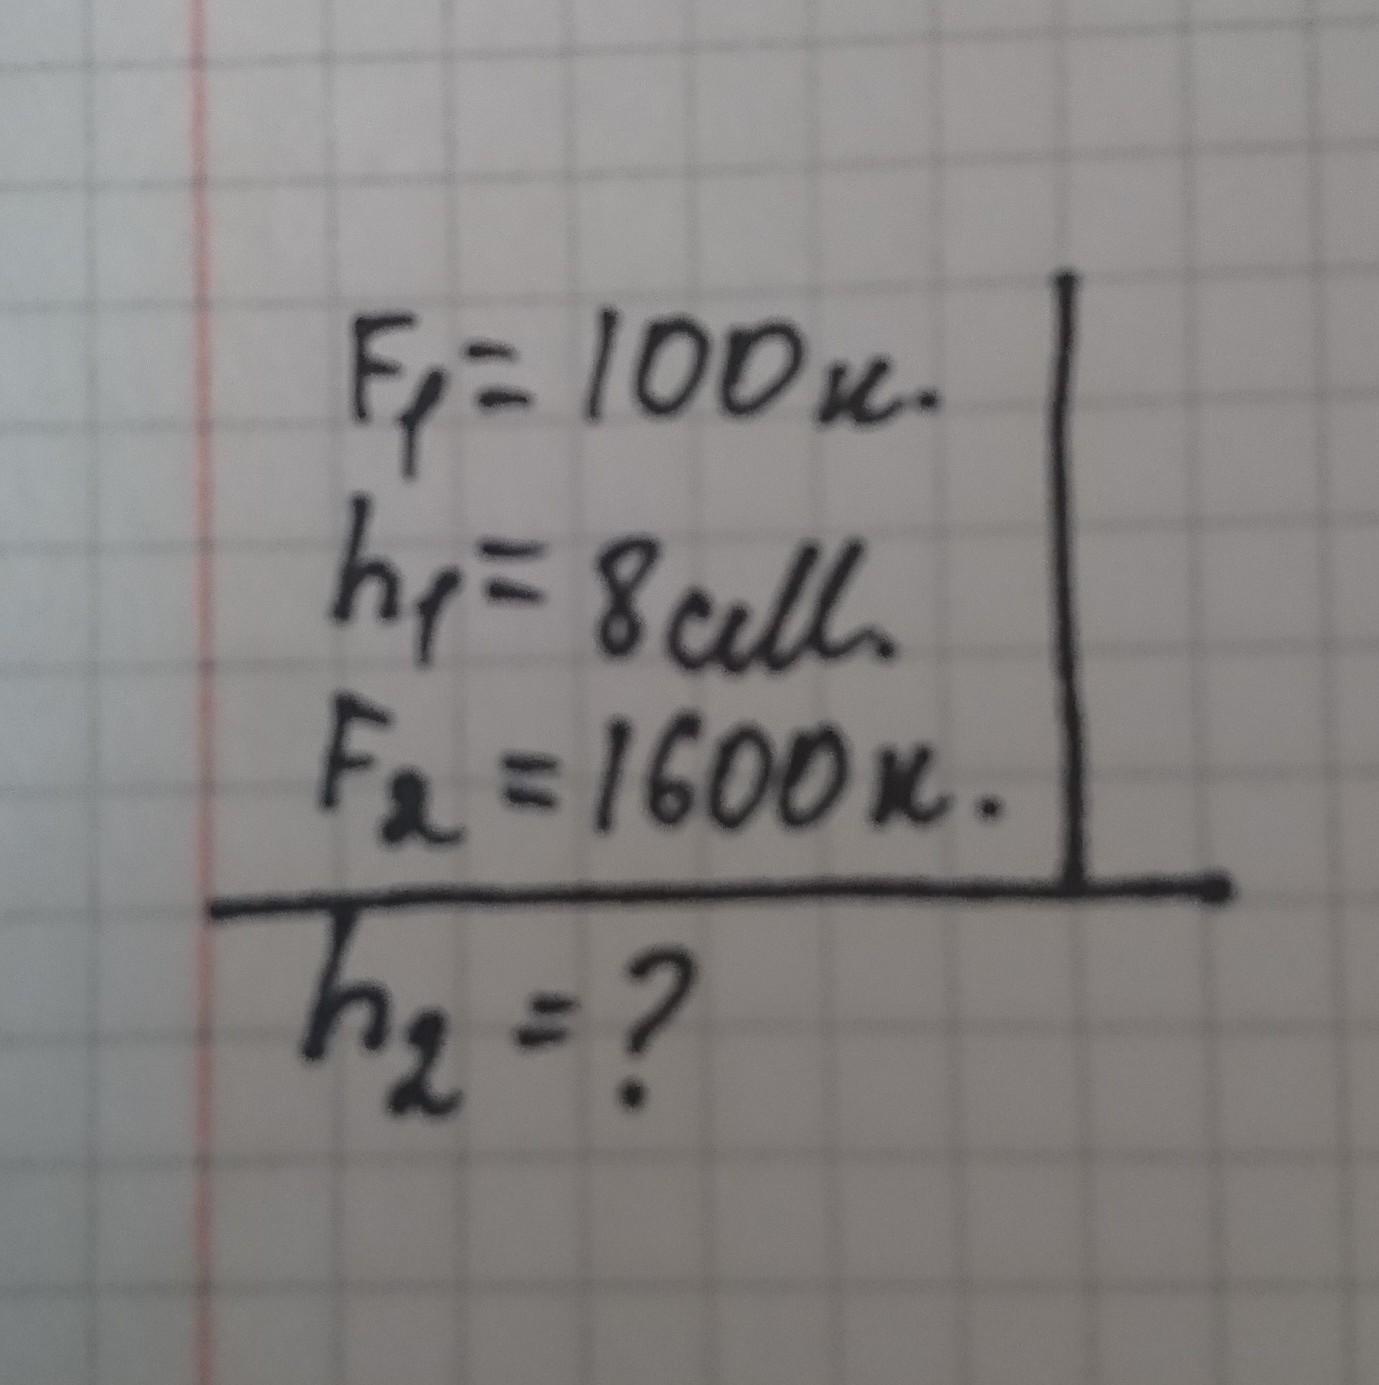 F₁ = 100 н.
h₁ = 8 см.
F₂ = 1600 н.
h₂ = ?